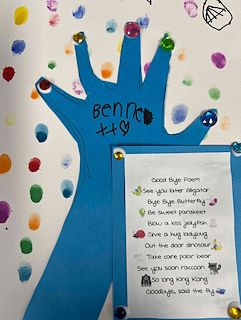 Benned
Good Bye Poem
See you later Alligator
Bye Bye Butterfly
Be sweet parakeet
Blow a kiss jellyfish
Give a hug ladybug
Out the door dinosaur
Take care polar bear
See you soon raccoon
So long King Kong
Goodbye, said the fly